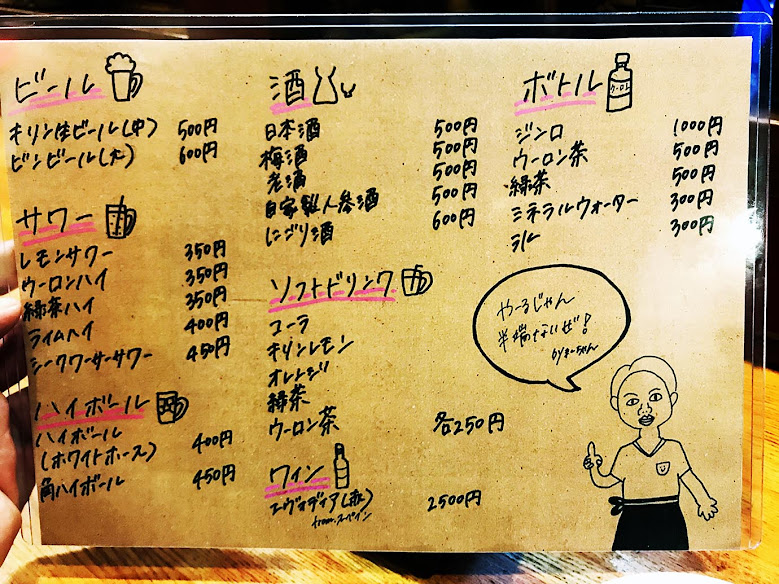 ビール
キリン生ビール(中) 500円
ビンビール(大) 600円
サワー
レモンサワー 350円
ウーロンハイ 350円
緑茶ハイ 350円
ライムハイ 400円
シークワーサーサワー 450円
ハイボール
ハイボール
(ホワイトホース) 400円
角ハイボール 450円
酒
日本酒 500円
梅酒 500円
老酒 500円
自家製人参酒 500円
にごり酒 600円
ソフトドリンク
コーラ
キリンレモン
オレンジ
緑茶
ウーロン茶 各250円
ワイン
エヴォディア(赤) 2500円
from.スペイン
ボトル
ジンロ 1000円
ウーロン茶 500円
緑茶 500円
ミネラルウォーター 300円
ライム 300円
やーるじゃん
半端ないぜ!